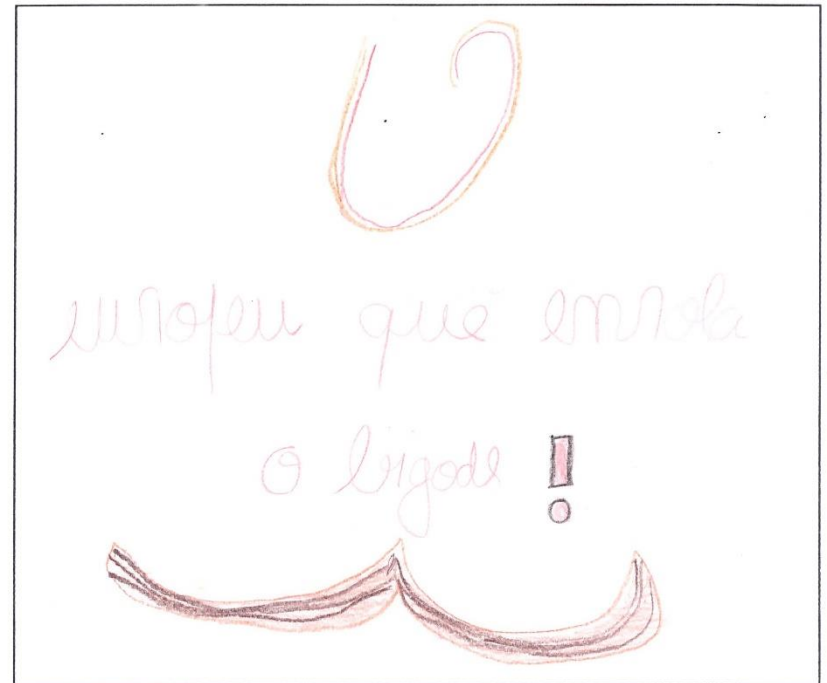 O
europeu que enrola
o bigode!